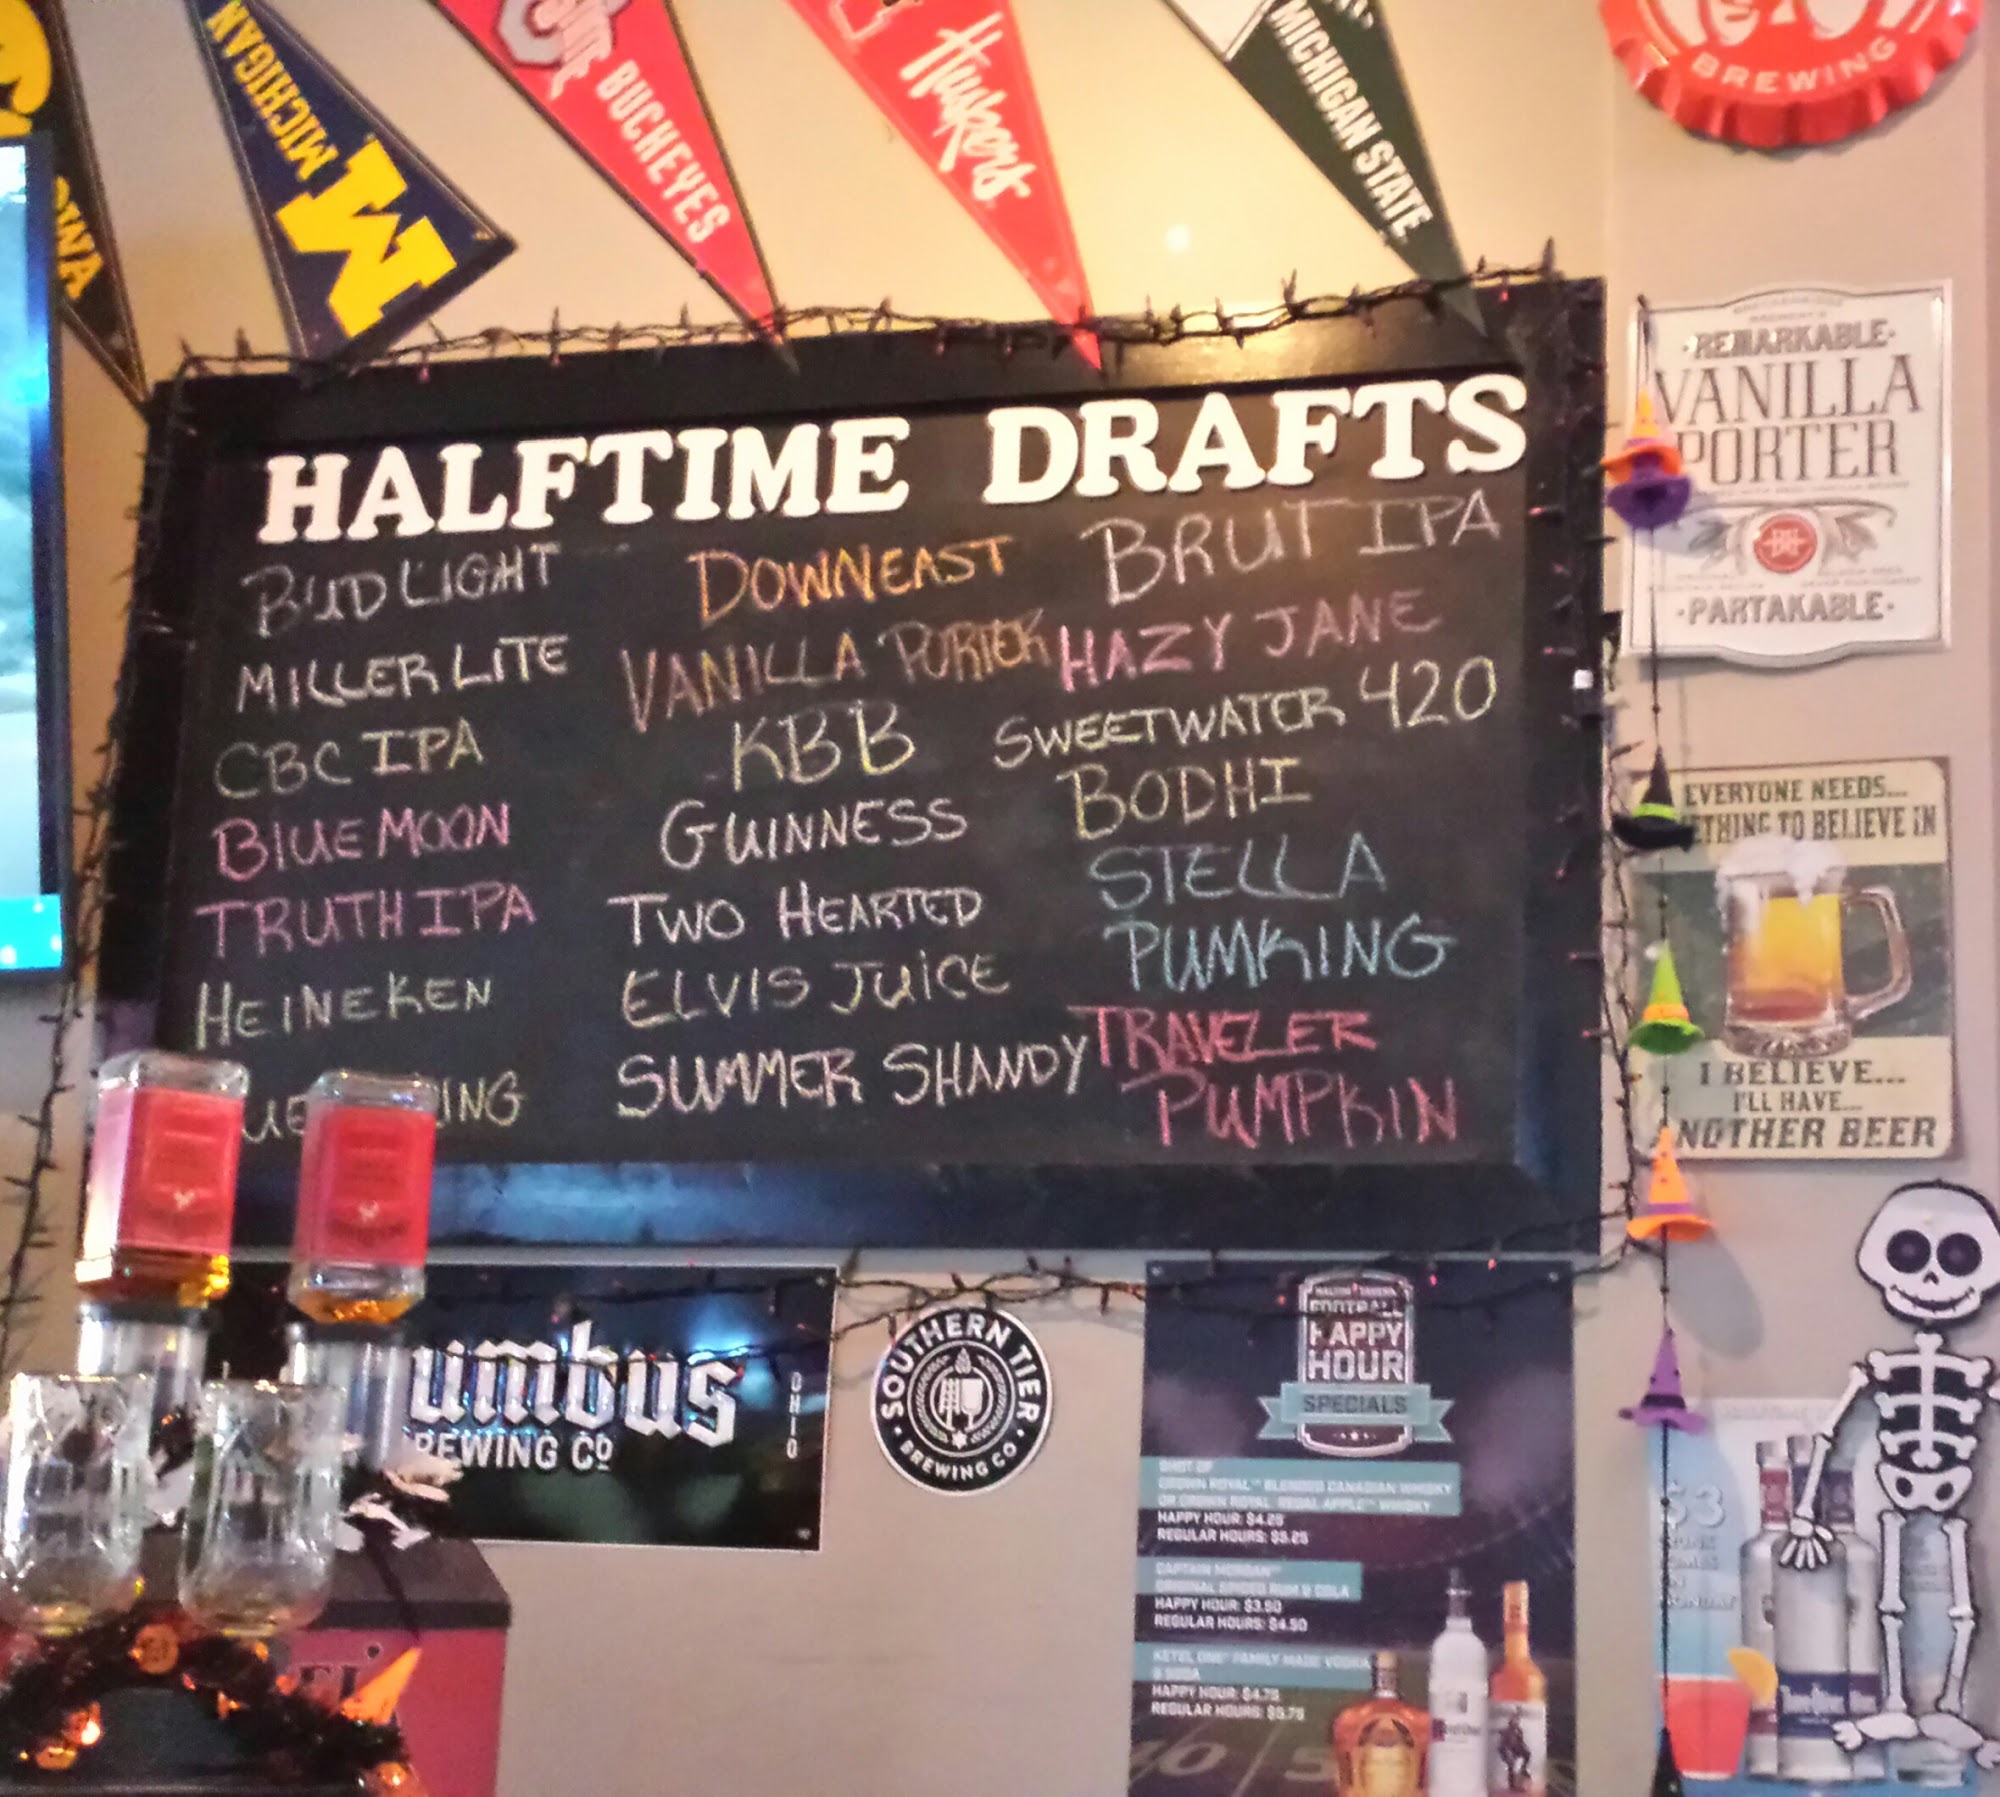 IOWA
MICHIGAN
M
BUCKEYES
Huskers
MICHIGAN STATE
BREWING
HALFTIME DRAFTS
BUD LIGHT
MILLER LITE
CBC IPA
BLUE MOON
TRUTH IPA
HEINEKEN
DOWNEAST
VANILLA PORTER
KBB
GUINNESS
TWO HEARTED
ELVIS JUICE
SUMMER SHANDY
BRUT IPA
HAZY JANE
SWEETWATER 420
BODHI
STELLA
PUMKING
TRAVELER
PUMPKIN
·REMARKABLE·
VANILLA
PORTER
·PARTAKABLE·
EVERYONE NEEDS...
TO BELIEVE IN
I BELIEVE...
I'LL HAVE...
BEER
umbus
BREWING CO
OHIO
SOUTHERN TIER
· BREWING CO ·
FOOTBALL
HAPPY
HOUR
SPECIALS
SHOT OF
CROWN ROYAL™ BLENDED CANADIAN WHISKY
OR CROWN ROYAL REGAL APPLE™ WHISKY
HAPPY HOUR: $4.25
REGULAR HOURS: $5.25
CAPTAIN MORGAN™
ORIGINAL SPICED RUM & COLA
HAPPY HOUR: $3.50
REGULAR HOURS: $4.50
KETEL ONE™ FAMILY MADE VODKA
& SODA
HAPPY HOUR: $4.75
REGULAR HOURS: $5.75
$3